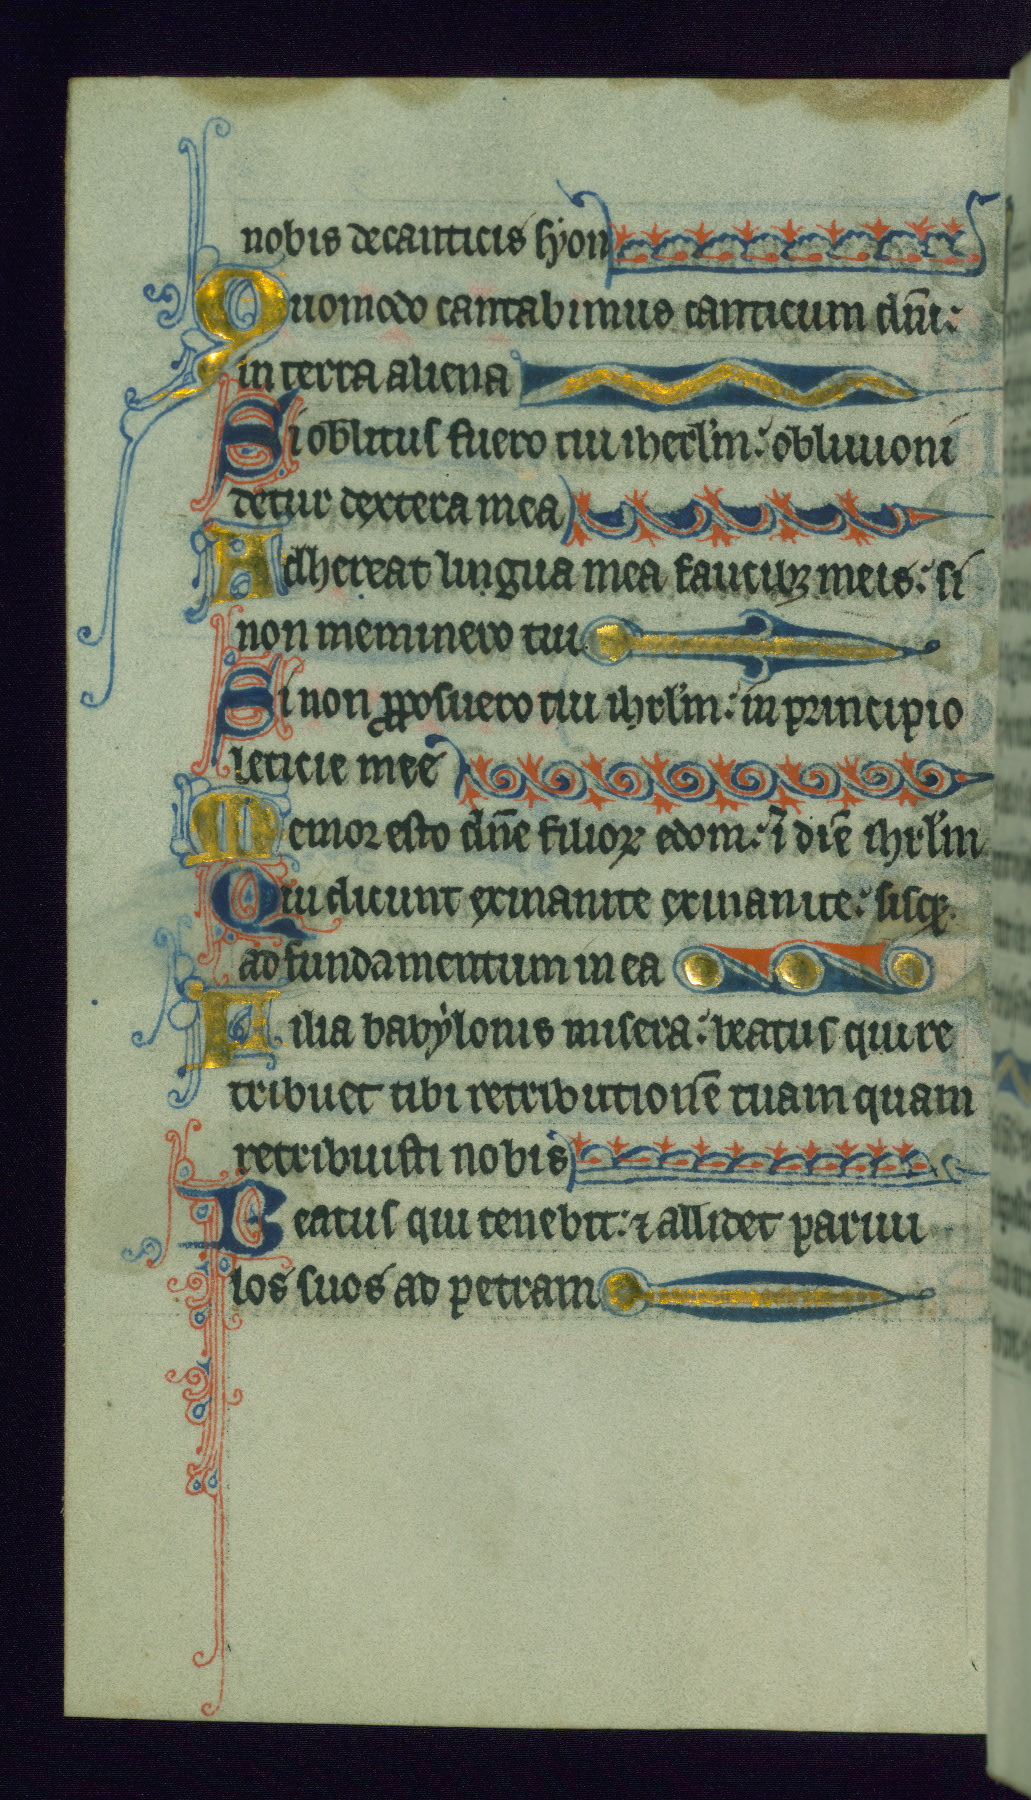 nobis de canticis syon
Quomodo cantabimus canticum dñi:
in terra aliena
Si oblitus fuero tui iherl'm: obliuioni
detur dextera mea
Adhereat lingua mea faucibꝫ meis: si
non meminero tui
Si non ꝓposuero tui ihrl'm: in principio
leticie mee
Memor esto dñe filioꝝ edom: ī diē ihrl'm
Qui dicunt exinanite exinanite: usqꝫ
ad fundamentum in ea
Filia babẏlonis misera: beatus qui re
tribuet tibi retributionē tuam quam
retribuisti nobis
Beatus qui tenebit: ⁊ allidet paruu
los suos ad petram